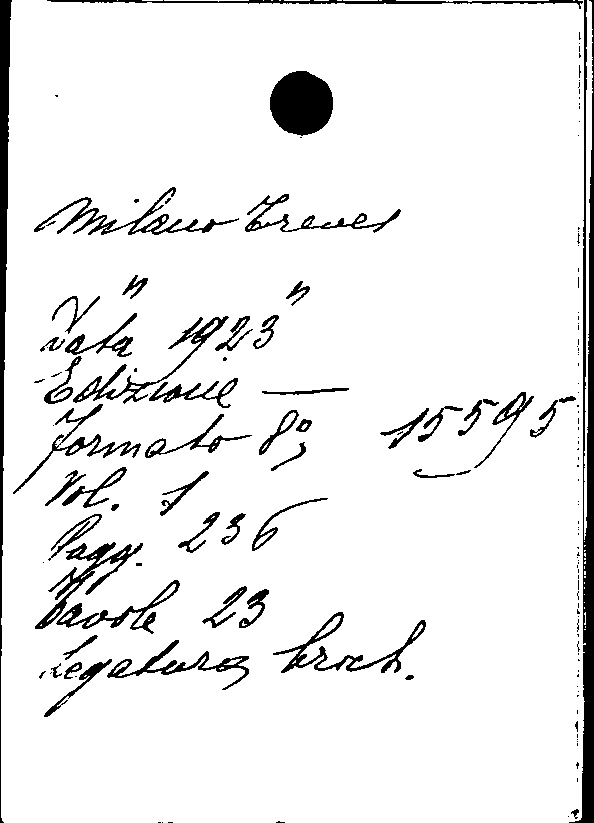 Milano Treves
" "
Data 1923
Edizione —
formato 8º 15595
Vol. 1
Pagg. 236
Tavole 23
Legatura broch.